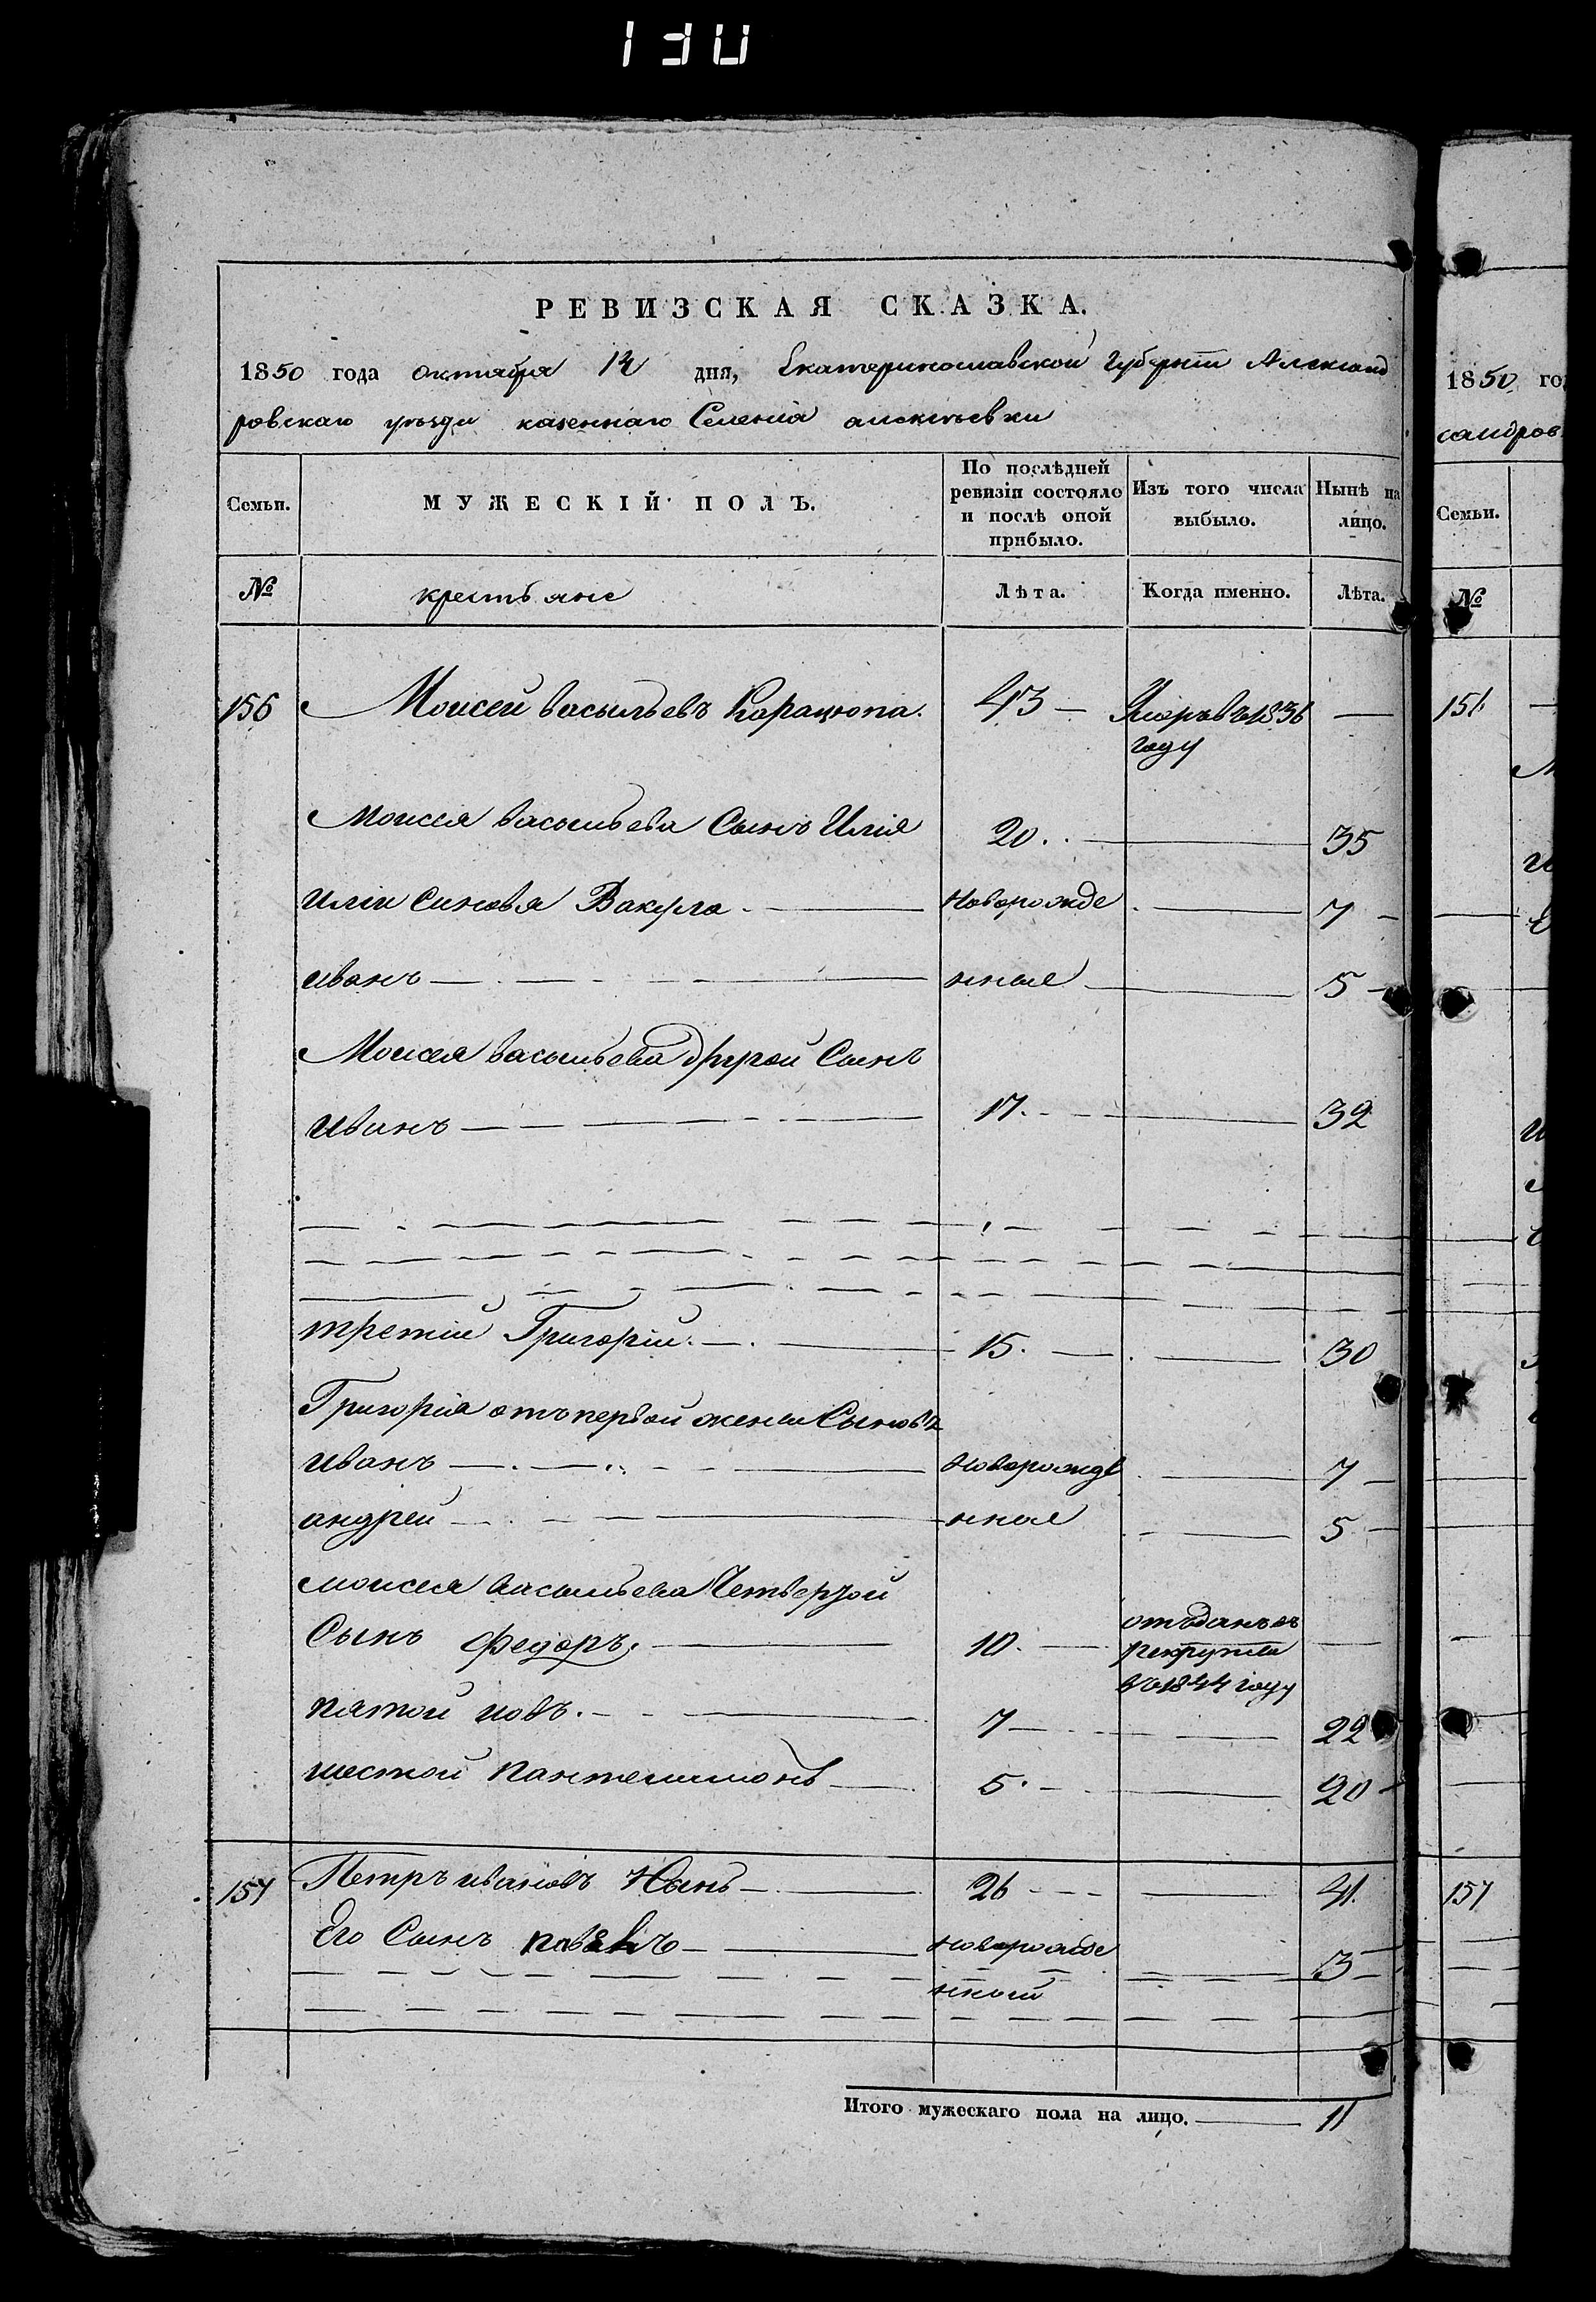 130
РЕВИЗСКАЯ СКАЗКА.
1850 года октября 14 дня, Екатеринославской губерніи Александ
ровскаго уѣзда казеннаго Селенія алексѣевки
Семьи.
МУЖЕСКІЙ ПОЛЪ.
По послѣдней ревизіи состояло и послѣ оной прибыло.
Изъ того числа выбыло.
Нынѣ на лицо.
№ крестьяне Лѣта. Когда именно. Лѣта.
156 Моисей васильевъ Карацюпа. 43 — Умеръ въ 1836 —
году
Моисея васильева Сынъ Илія 20. 35
Иліи Синовя Вакула новорожде 7
иванъ нные 5
Моисея васильева другой Сынъ
Иванъ 17. 32
третій Григорій. 15. 30
Григорія отъ первой жены Сыновя
иванъ новорожде 7
андрей нные 5
моисея васильева Четвертой
Сынъ федоръ. 10. отъданъ въ
рекруты
въ 1844 году
пятой иовъ. 7 22
шестой пантелимонъ 5. 20
157 Петръ ивановъ 26 41.
Его Сынъ павелъ новорожде 3
нный
Итого мужескаго пола на лицо. 11
1850 го
сандров
Семьи.
№
156
157